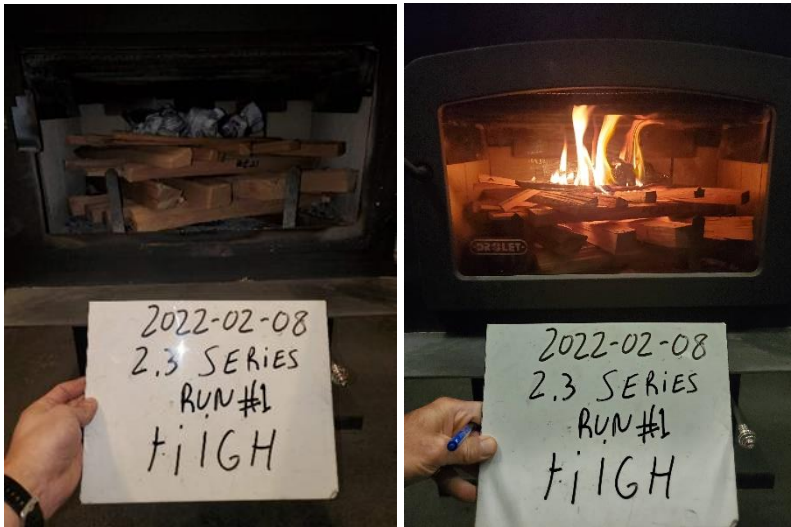 2022-02-08
2.3 SERIES
RUN #1
HiGH
DROLET
2022-02-08
2.3 SERIES
RUN #1
HiGH